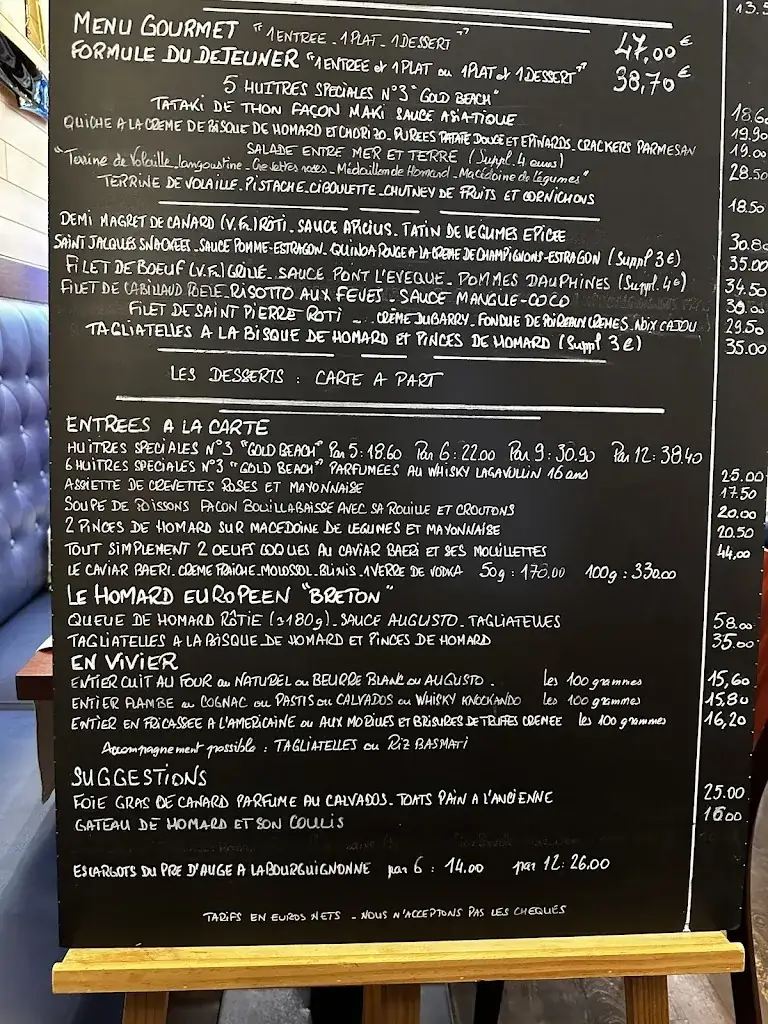 13.5
MENU GOURMET "1 ENTREE - 1 PLAT - 1 DESSERT" 47,00€
FORMULE DU DEJEUNER "1 ENTREE et 1 PLAT ou 1 PLAT et 1 DESSERT" 38,70€
5 HUITRES SPECIALES N°3 "GOLD BEACH"
TATAKI DE THON FAÇON MAKI SAUCE ASIATIQUE 18.60
QUICHE A LA CREME DE BISQUE DE HOMARD ET CHORIZO. PUREES PATATE DOUCE ET EPINARDS. CRACKERS PARMESAN 19.90
SALADE ENTRE MER ET TERRE (Suppl. 4 euros) 19.00
"Terrine de Volaille, langoustine - Crevettes roses - Médaillon de Homard - Macédoine de légumes" 28.50
TERRINE DE VOLAILLE. PISTACHE. CIBOULETTE - CHUTNEY DE FRUITS ET CORNICHONS 18.50
DEMI MAGRET DE CANARD (V.Fr.) RÔTI - SAUCE APICIUS. TATIN DE LEGUMES EPICEE 30.80
SAINT JACQUES SNACKEES - SAUCE POMME-ESTRAGON - QUINOA ROUGE A LA CREME DE CHAMPIGNONS-ESTRAGON (Suppl 3€) 35.00
FILET DE BOEUF (V.Fr.) GRILLE. SAUCE PONT L'EVEQUE - POMMES DAUPHINES (Suppl. 4€) 34.50
FILET DE CABILLAUD POELE. RISOTTO AUX FEVES - SAUCE MANGUE-COCO 30.00
FILET DE SAINT PIERRE ROTI - CREME DUBARRY. FONDUE DE POIREAUX CREMES. NOIX CAJOU 29.50
TAGLIATELLES A LA BISQUE DE HOMARD ET PINCES DE HOMARD (Suppl 3€) 35.00
LES DESSERTS : CARTE A PART
ENTREES A LA CARTE
HUITRES SPECIALES N°3 "GOLD BEACH" Par 5: 18.60 Par 6: 22.00 Par 9: 30.90 Par 12: 38.40
6 HUITRES SPECIALES N°3 "GOLD BEACH" PARFUMEES AU WHISKY LAGAVULLIN 16 ans 25.00
ASSIETTE DE CREVETTES ROSES ET MAYONNAISE 17.50
SOUPE DE POISSONS FAÇON BOUILLABAISSE AVEC SA ROUILLE ET CROUTONS 20.00
2 PINCES DE HOMARD SUR MACEDOINE DE LEGUMES ET MAYONNAISE 20.50
TOUT SIMPLEMENT 2 OEUFS COQUES AU CAVIAR BAERI ET SES MOUILLETTES 44,00
LE CAVIAR BAERI. CREME FRAICHE. MOLOSSOL. BLINIS. 1 VERRE DE VODKA 50g : 170.00 100g : 330.00
LE HOMARD EUROPEEN "BRETON"
QUEUE DE HOMARD RÔTIE (≥180g) - SAUCE AUGUSTO - TAGLIATELLES 58.00
TAGLIATELLES A LA BISQUE DE HOMARD ET PINCES DE HOMARD 35.00
EN VIVIER
ENTIER CUIT AU FOUR ou NATUREL ou BEURRE BLANC ou AUGUSTO. les 100 grammes 15,60
ENTIER FLAMBE au COGNAC ou PASTIS ou CALVADOS ou WHISKY KNOCKANDO les 100 grammes 15,80
ENTIER EN FRICASSEE A L'AMERICAINE ou AUX MORILLES ET BRISURES DE TRUFFES CREMEE les 100 grammes 16,20
Accompagnement possible : TAGLIATELLES ou RIZ BASMATI
SUGGESTIONS
FOIE GRAS DE CANARD PARFUME AU CALVADOS. TOATS PAIN A L'ANCIENNE 25.00
GATEAU DE HOMARD ET SON COULIS 16.00
ESCARGOTS DU PRE D'AUGE A LA BOURGUIGNONNE par 6 : 14.00 par 12: 26.00
TARIFS EN EUROS NETS - NOUS N'ACCEPTONS PAS LES CHEQUES